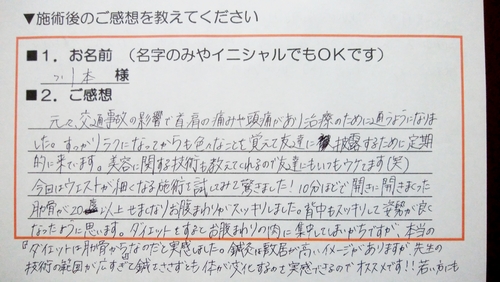 ▼施術後のご感想を教えてください
■1．お名前　（名字のみやイニシャルでもOKです）
本　様
■2．ご感想
元々、交通事故の影響で首肩の痛みや頭痛があり治療のために通うようになりま
した。すっかりラクになってからも色々なことを覚えて友達に披露するために定期
的に来ています。美容に関する技術も教えてくれるので友達にもいつもウケてます（笑）
今回はウエストが細くなる施術を試してみて驚きました！10分ほどで開きに開きまくった
肋骨が20以上せまくなりお腹まわりがスッキリしました。背中もスッキリして姿勢が良く
なったように思います。ダイエットをするとお腹まわりの肉に集中してしまいがちですが、本当の
ダイエットは肋骨からなのだと実感しました。鍼灸は敷居が高いイメージがありますが、先生の
技術の範囲が広すぎて鍼をささずとも体が変化するので実感できるのでオススメです!!若い方にも